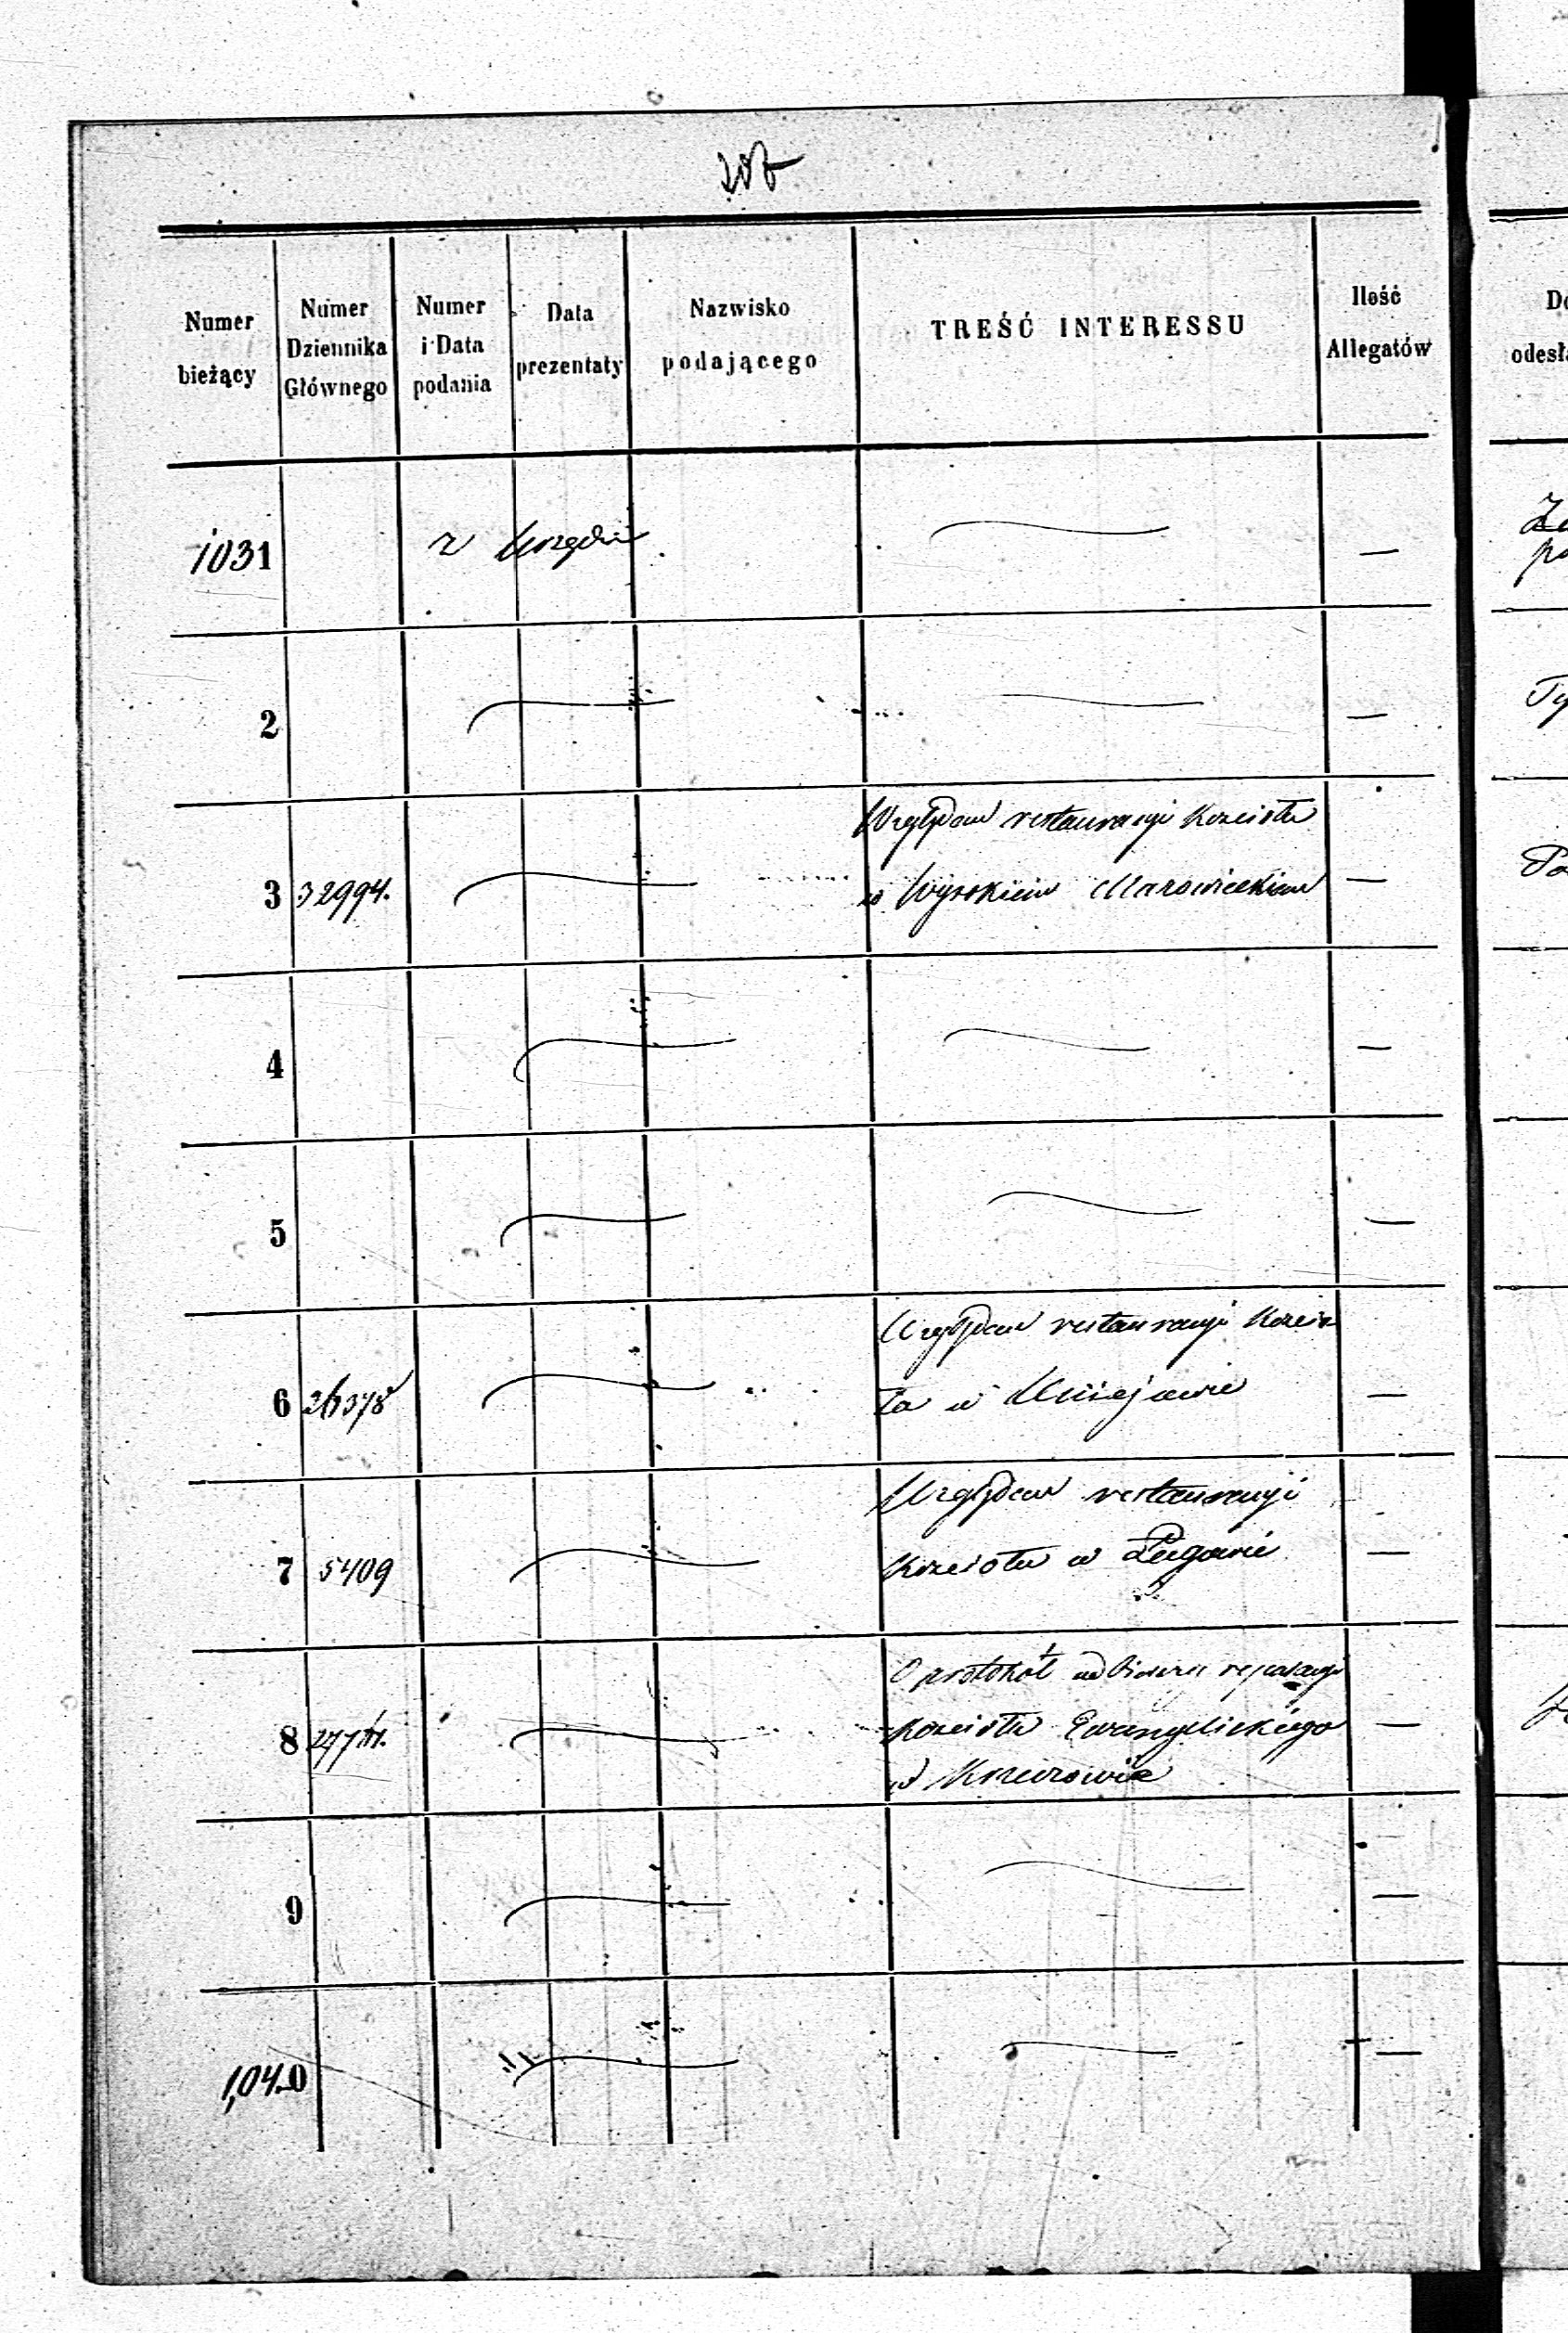 Numer bieżący
Numer Dziennika Głównego
Numer i Data podania
Data prezentaty
Nazwisko podającego
TREŚĆ INTERESSU
Ilość Allegatów
1031 z Urzędu —
2 —
3 32994. Względem restauracyi Kościoła —
w Wysokiem Mazowieckiem
4 —
5 —
6 Względem restauracyi Kościo
ła w —
7 5409 Względem restauracyi
Kościoła w —
8 O protokół odbioru reparacyi
Kościoła Ewangelickiego —
w
9 —
1,040 —